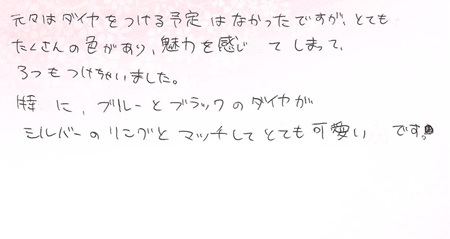 元々はダイヤをつける予定はなかったですが、とても
たくさんの色があり、魅力を感じてしまって、
3つもつけちゃいました。
特に、ブルーとブラックのダイヤが
シルバーのリングとマッチしてとても可愛いです。